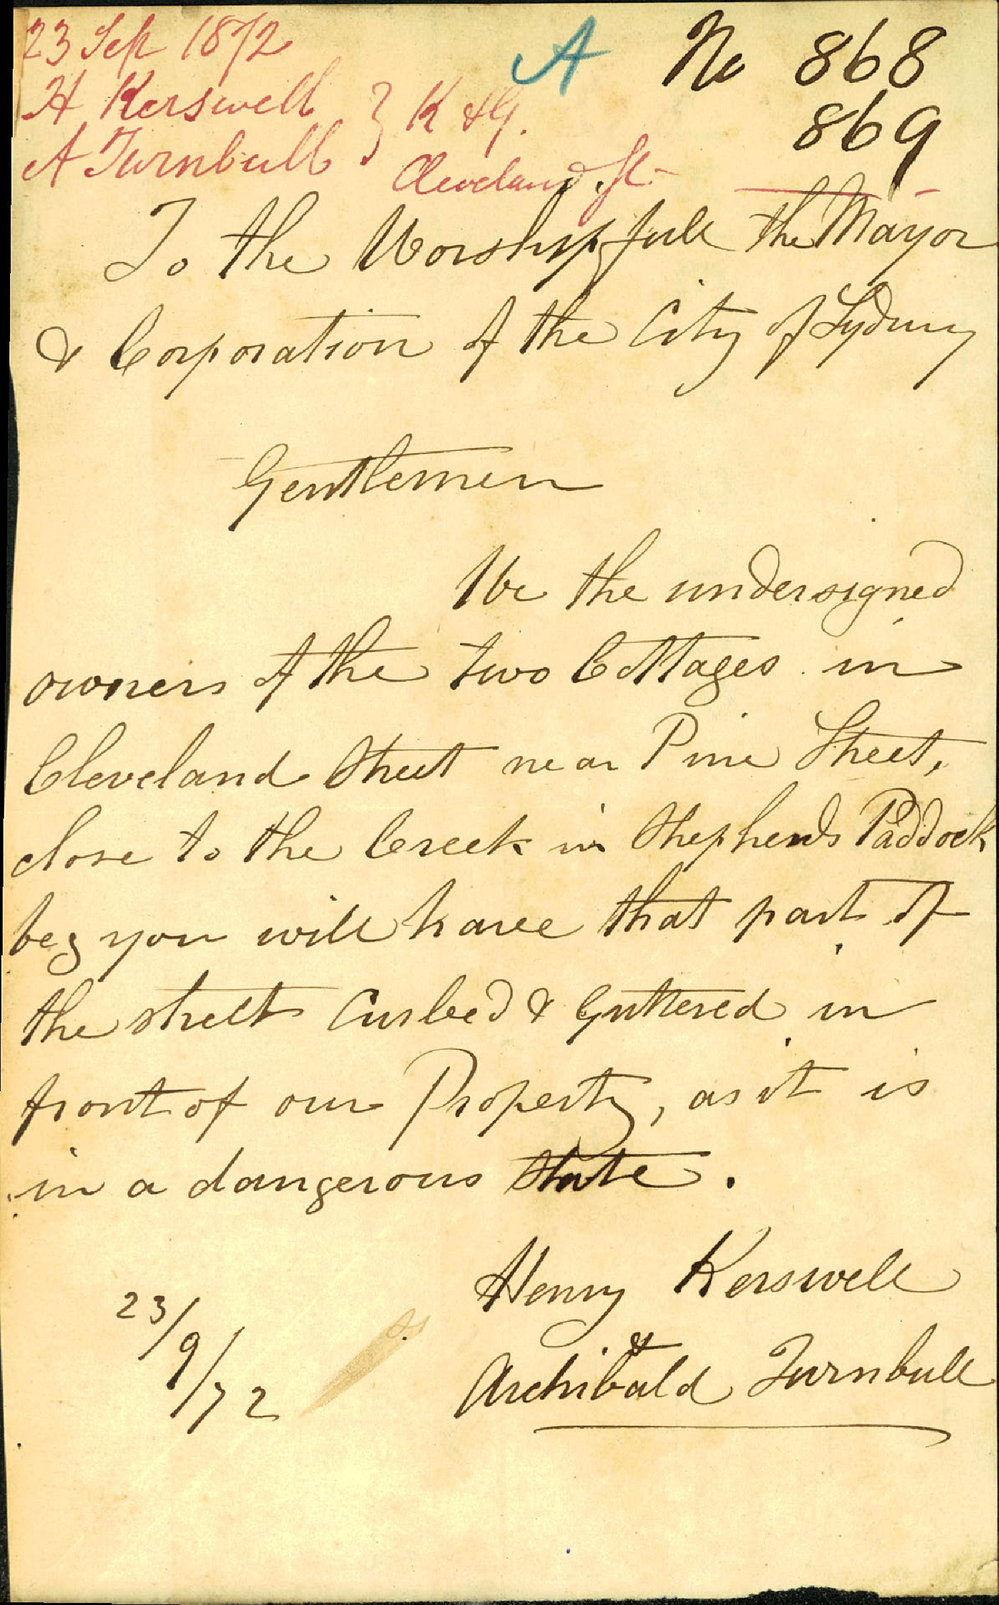 23 Sep 1872
H Kerswell } K & G.
A Turnbull Cleveland St
A
No 868
869
To the Worshipfull the Mayor
& Corporation of the City of Sydney
Gentlemen
We the undersigned
owners of the two Cottages in
Cleveland Street near Pine Street,
close to the Creek in Shepherds Paddock
beg you will have that part of
the street Curbed & Guttered in
front of our Property, as it is
in a dangerous state.
Henry Kerswell
&
Archibald Turnbull
23/9/72